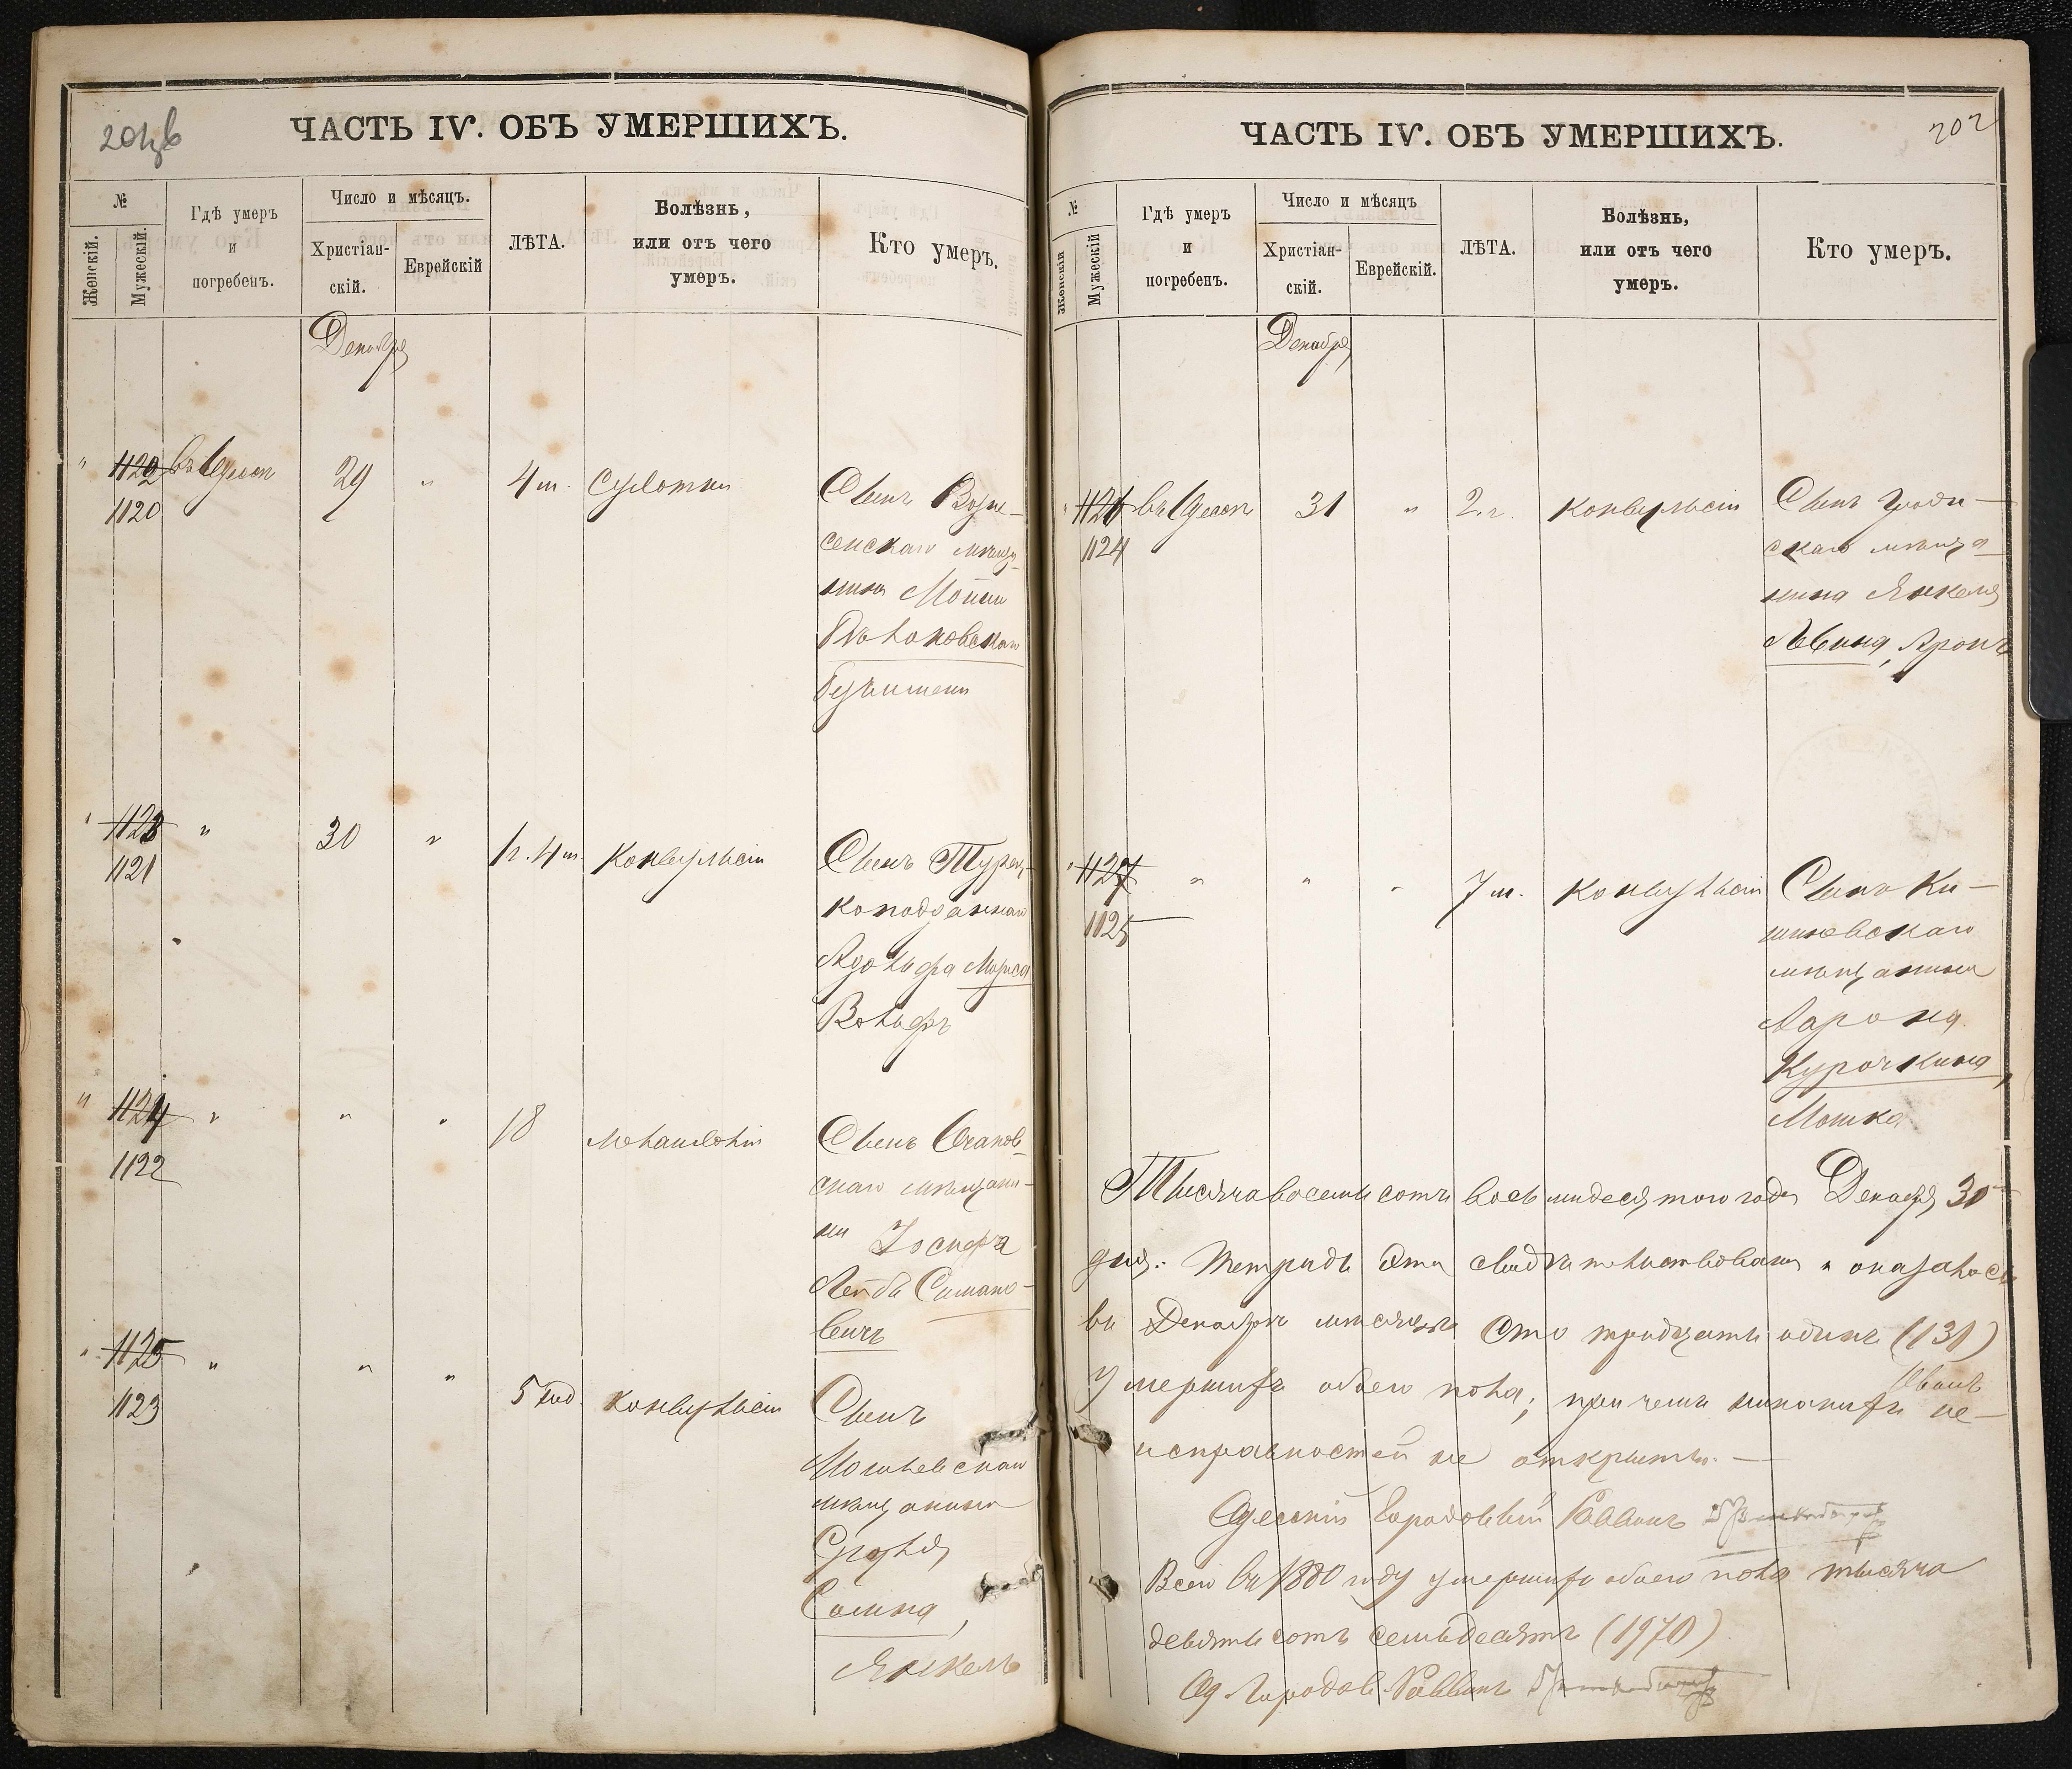 201 об
ЧАСТЬ IV. ОБЪ УМЕРШИХЪ.
№
Женскій.
Мужескій.
Гдѣ умеръ
и
погребенъ.
Число и мѣсяцъ.
Христіан-
скій.
Еврейскій
ЛѢТА.
Болѣзнь,
или отъ чего
умеръ.
Кто умеръ.
Декабря
" 1122 въ Одессѣ 29 " 4 м. Сухотки Сынъ Возне-
1120
сенскаго мѣща-
нина
"
1123 " 30 " 1 г. 4 м. Конвульсіи Сынъ Турец-
1121
коподданнаго
Адольфа
Вольфъ
" 1124 " " " 18 Сынъ Очаков-
1122
скаго мѣщани-
на Іосифа
Лейба Симано-
вичъ
" 1125 " " " 5 Конвульсіи Сынъ
1123
Могилевскаго
мѣщанина
Сруля
Янкель
202
ЧАСТЬ IV. ОБЪ УМЕРШИХЪ.
№
Женскій
Мужескій
Гдѣ умеръ
и
погребенъ.
Число и мѣсяцъ
Христіан-
скій.
Еврейскій.
ЛѢТА.
Болѣзнь,
или отъ чего
умеръ.
Кто умеръ.
Декабря
" 1126 въ Одессѣ 31 " 2 г. Конвульсіи Сынъ
1124
скаго мѣща-
нина Янкеля
Левина, Аронъ
" 1127 " " " 7 м. Конвульсіи Сынъ Ки-
1125
шиневскаго
мѣщанина
Аарона
Курочкина,
Мошка
Тысяча восемьсотъ восьмидесятого года Декабря 30
дня. Тетрадь эта свидѣтельствована и оказалось
въ Декабрѣ мѣсяцѣ сто тридцать одинъ (131)
умершихъ обоего пола; при чемъ никакихъ не-
исправностей не открыто. —
Одесскій Городовый Раввинъ
Всего въ 1880 году умершихъ обоего пола тысяча
девятьсотъ семьдесятъ (1970)
Од. Городов. Раввинъ